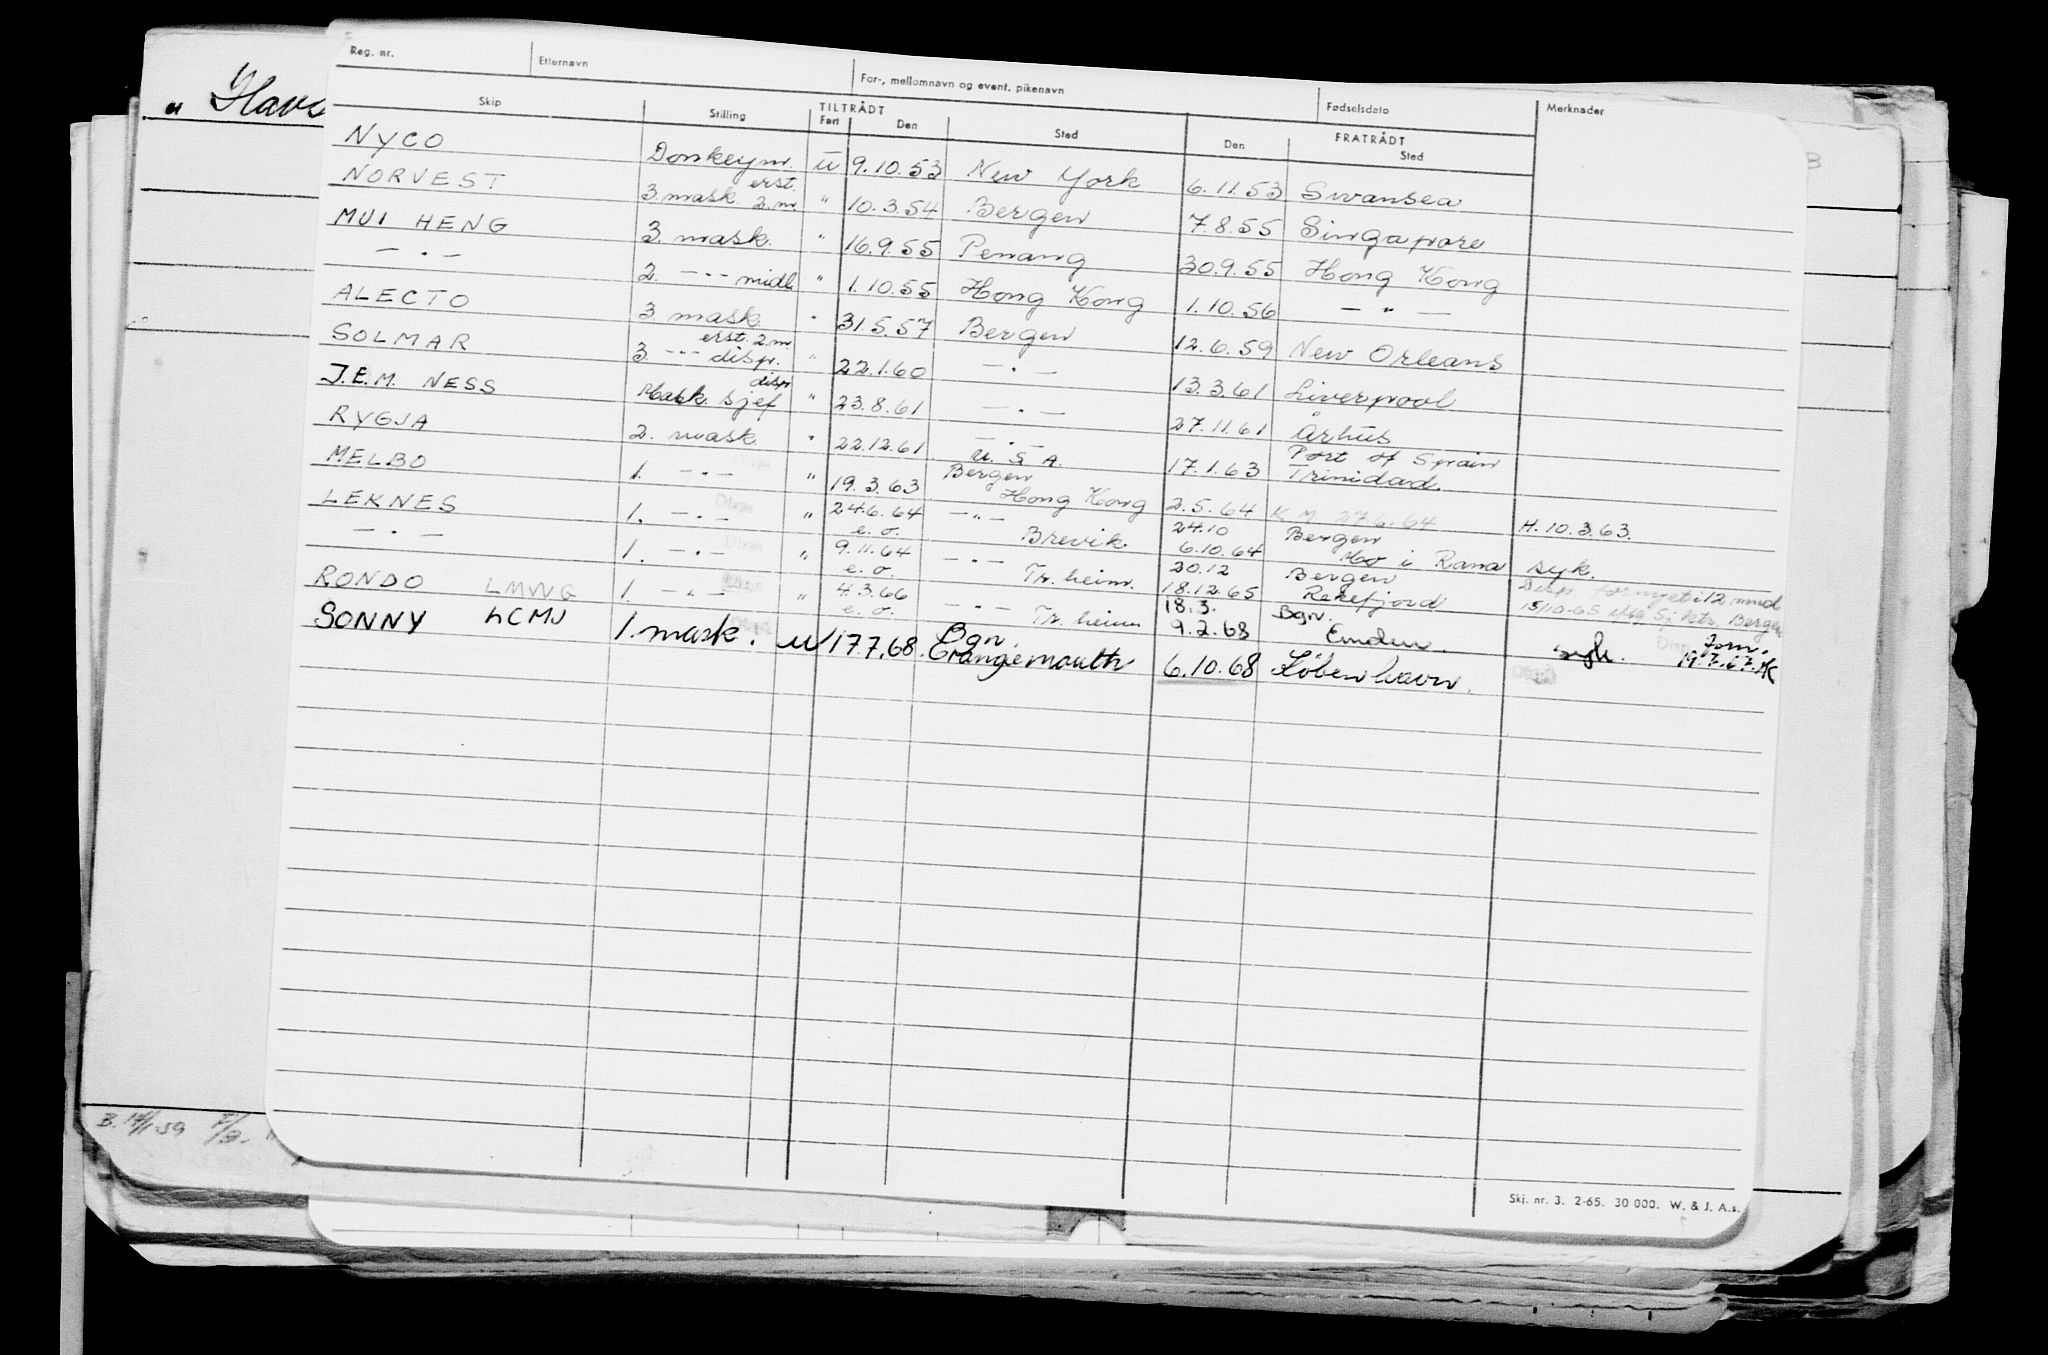 Reg. nr. Etternavn For-, mellomnavn og event. pikenavn Fødselsdato Merknader
Skip Stilling TILTRÅDT Fart Den Sted FRATRÅDT Den Sted
" Havs
NYCO Donkeym. u 9.10.53 New York 6.11.53 Swansea
NORVEST 3 mask. erst. 2.m. " 10.3.54 Bergen 7.8.55 Singapore
MUI HENG 3. mask. " 16.9.55 Penang 30.9.55 Hong Kong
— " — 2. — " — midl. " 1.10.55 Hong Kong 1.10.56 — " —
ALECTO 3 mask " 31.5.57 Bergen 12.6.59 New Orleans
SOLMAR 3. — " — erst. 2.m. disp. " 22.1.60 — " — 13.3.61 Liverpool
J.E.M. NESS Mask. sjef disp " 23.8.61 — " — 27.11.61 Århus
RYGJA 2. mask " 22.12.61 — " — U.S.A. 17.1.63 Port of Spain Trinidad
MELBO 1. — " — " 19.3.63 Bergen Hong Kong 2.5.64 K M 27.6.64 H. 10.3.63.
LEKNES 1. — " — " 24.6.64 e.o. — " — Brevik 24.10 6.10.64 Bergen Mo i Rana syk.
— " — 1. — " — " 9.11.64 e.o. — " — Tr. heim. 20.12 18.12.65 Bergen Rekefjord Disp fornyet i 12 mnd
RONDO LMWG 1. — " — " 4.3.66 e.o. — " — Tr. heim 18.3. 9.2.68 Bgn. Emden. 15/10-65 Sj.ktr. Bergen syk. 19.7.67.
SONNY LCMJ 1. mask. u 17.7.68. Bgn. Grangemouth 6.10.68 København.
B. 14/1 59
Skj. nr. 3. 2-65. 30 000. W. & J. A.s.